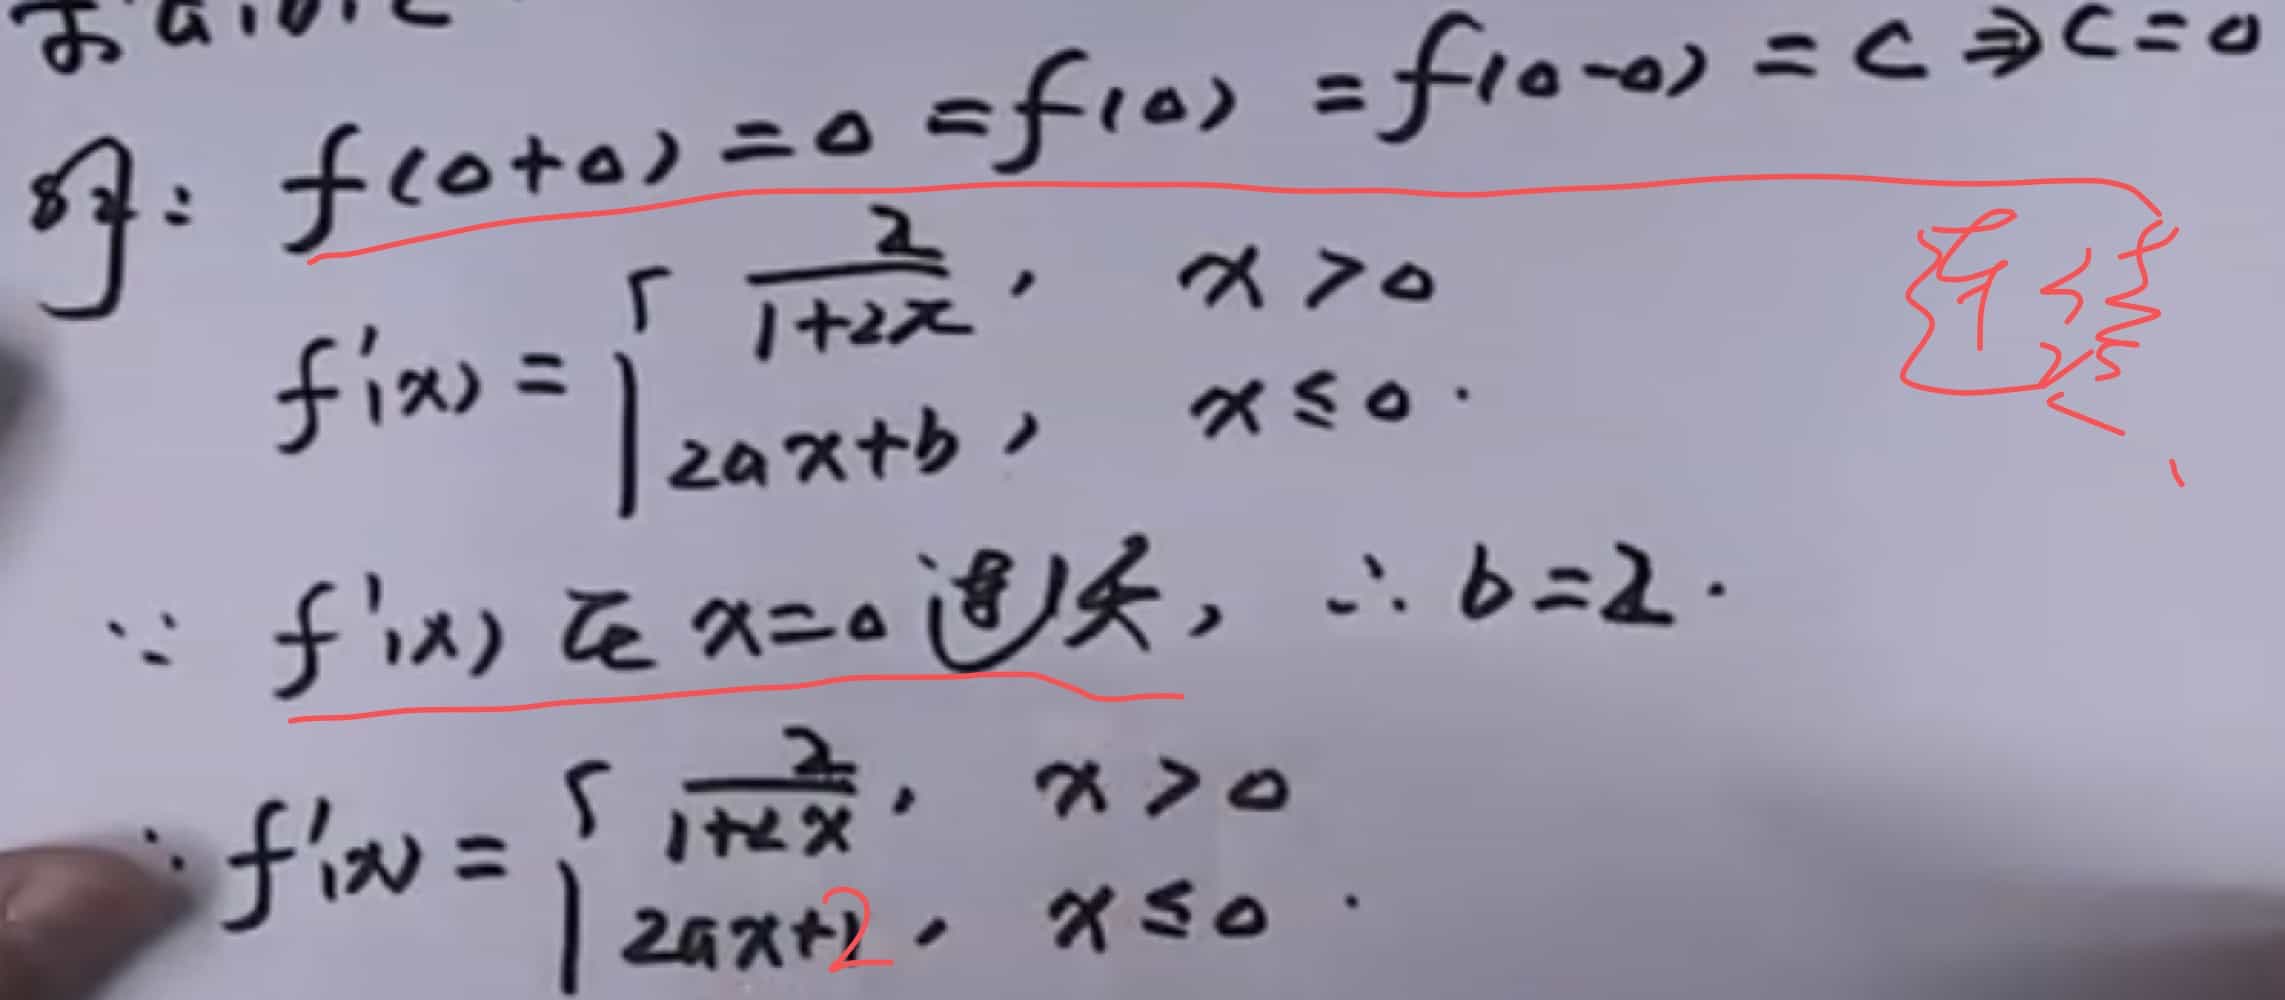 求a,b,c
解: f(0+0) = 0 = f(0) = f(0-0) = c ⇒ c = 0
f'(x) = { 2/(1+2x), x > 0
2ax+b, x ≤ 0.
∵ f'(x) 在 x=0 连续, ∴ b=2.
∴ f'(x) = { 2/(1+2x), x > 0
2ax+2, x ≤ 0.